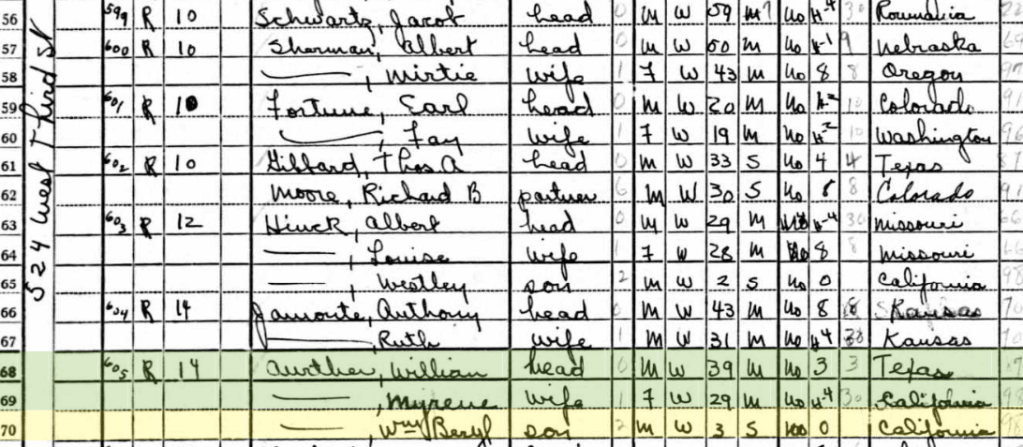 524 West Third St
56 599 R 10 Schwartz, Jacob head 0 M W 59 M 7 no H-4 30 Roumania
57 600 R 10 Sharman, Albert head 0 M W 60 M no H-1 9 Nebraska
58 —, Mirtie wife 1 F W 43 M no 8 8 Oregon 97
59 601 R 10 Fortune, Earl head 0 M W 20 M no H-2 10 Colorado 91
60 —, Fay wife 1 F W 19 M no H-2 10 Washington 96
61 602 R 10 Gibbard, Thos. A head 0 M W 33 S no 4 4 Texas 87
62 Moore, Richard B partner 6 M W 30 S no 8 8 Colorado 91
63 603 R 12 Hinck, Albert head 0 M W 29 M no H-4 30 Missouri 66
64 —, Louise wife 1 F W 28 M no 8 8 Missouri 66
65 —, Westley son 2 M W 2 S no 0 California 98
66 604 R 14 Jamonte, Anthony head 0 M W 43 M no 8 8 Kansas 70
67 — Ruth wife 1 F W 31 M no H4 30 Kansas 70
68 605 R 14 Aurther, William head 0 M W 39 M no 3 3 Texas
69 —, Myrene wife 1 F W 29 M no H-4 30 California 98
70 — Wm Beryl son 2 M W 3 S no 0 California 98